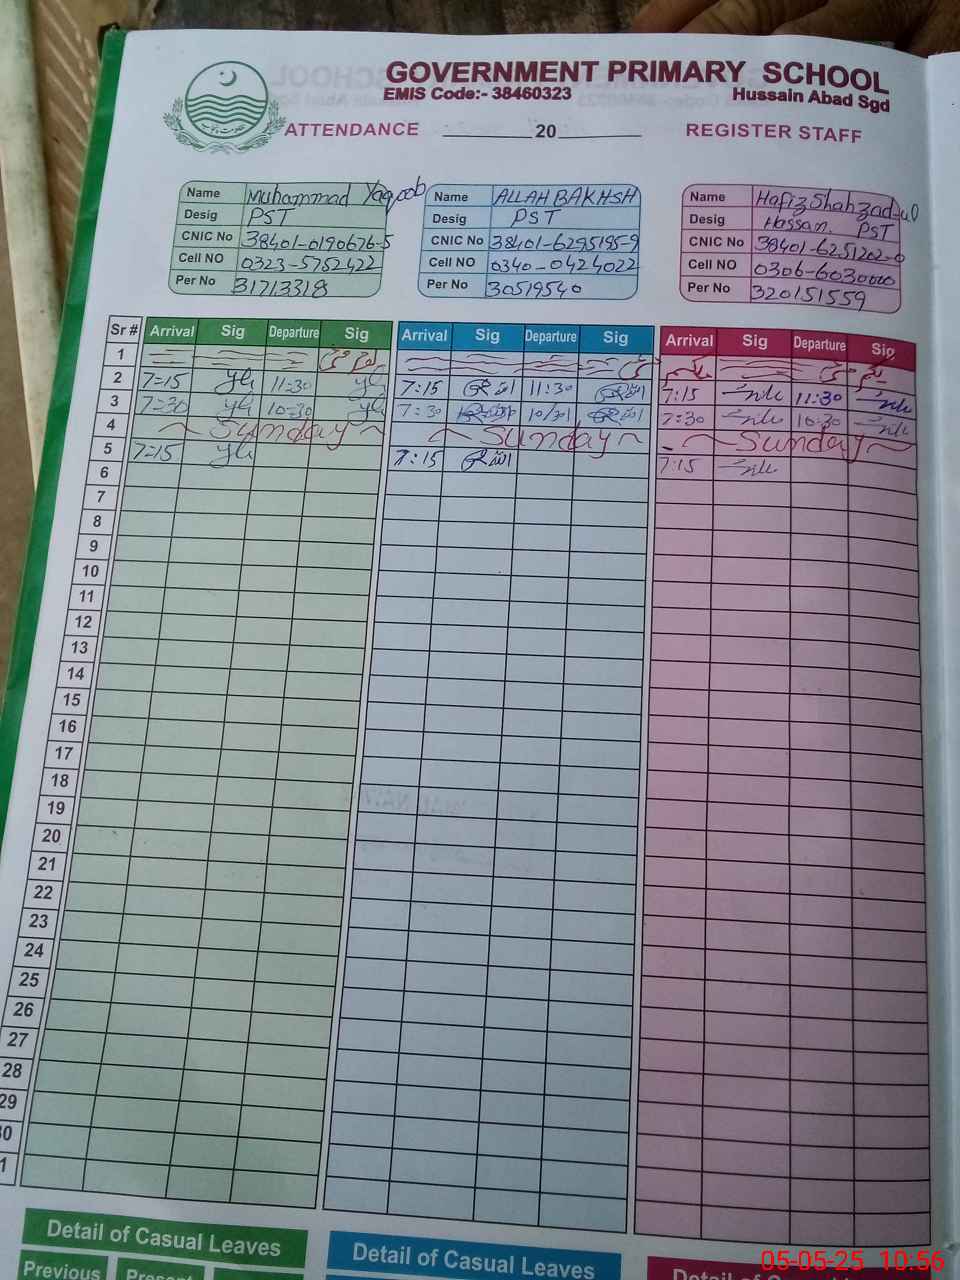 GOVERNMENT PRIMARY SCHOOL
EMIS Code:- 38460323 Hussain Abad Sgd
ATTENDANCE ________20________ REGISTER STAFF
Name Muhammad Yaqoob
Desig PST
CNIC No 38401-0190676-5
Cell NO 0323-5752422
Per No 31713318
Name ALLAH BAKHSH
Desig PST
CNIC No 38401-6295195-9
Cell NO 0340-0424022
Per No 30519540
Name Hafiz Shahzad-ul
Desig Hassan. PST
CNIC No 38401-6251202-0
Cell NO 0306-6030000
Per No 320151559
Sr # Arrival Sig Departure Sig Arrival Sig Departure Sig Arrival Sig Departure Sig
1
2 7-15 11-30 7:15 11:30 7:15 11:30
3 7-30 10-30 7:30 7:30 10-30
4 ~ Sunday ~ ~ Sunday ~ ~ Sunday ~
5 7-15 7:15 7:15
6
7
8
9
10
11
12
13
14
15
16
17
18
19
20
21
22
23
24
25
26
27
28
29
30
1
Detail of Casual Leaves Detail of Casual Leaves
Previous Present
05-05-25 10:56